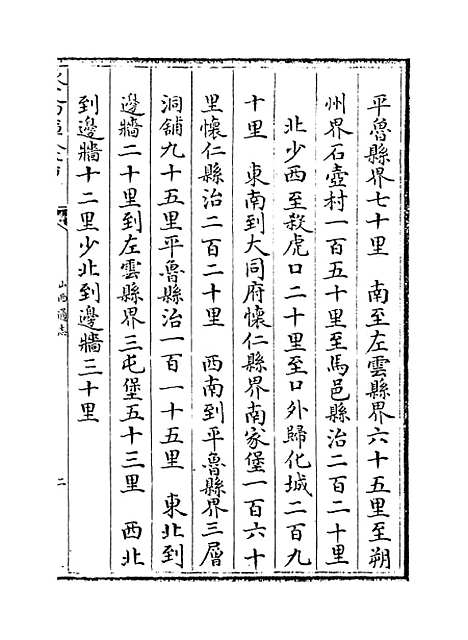 平魯縣界七十里　南至左雲縣界六十五里至朔
州界石壺村一百五十里至馬邑縣治二百二十里
北少西至殺虎口二十里至口外歸化城二百九
十里　東南到大同府懷仁縣界南家堡一百六十
里懷仁縣治二百二十里　西南到平魯縣界三層
洞舖九十五里平魯縣治一百一十五里　東北到
邊牆二十里到左雲縣界三屯堡五十三里　西北
到邊牆十二里少北到邊牆三十里
山西通志
二